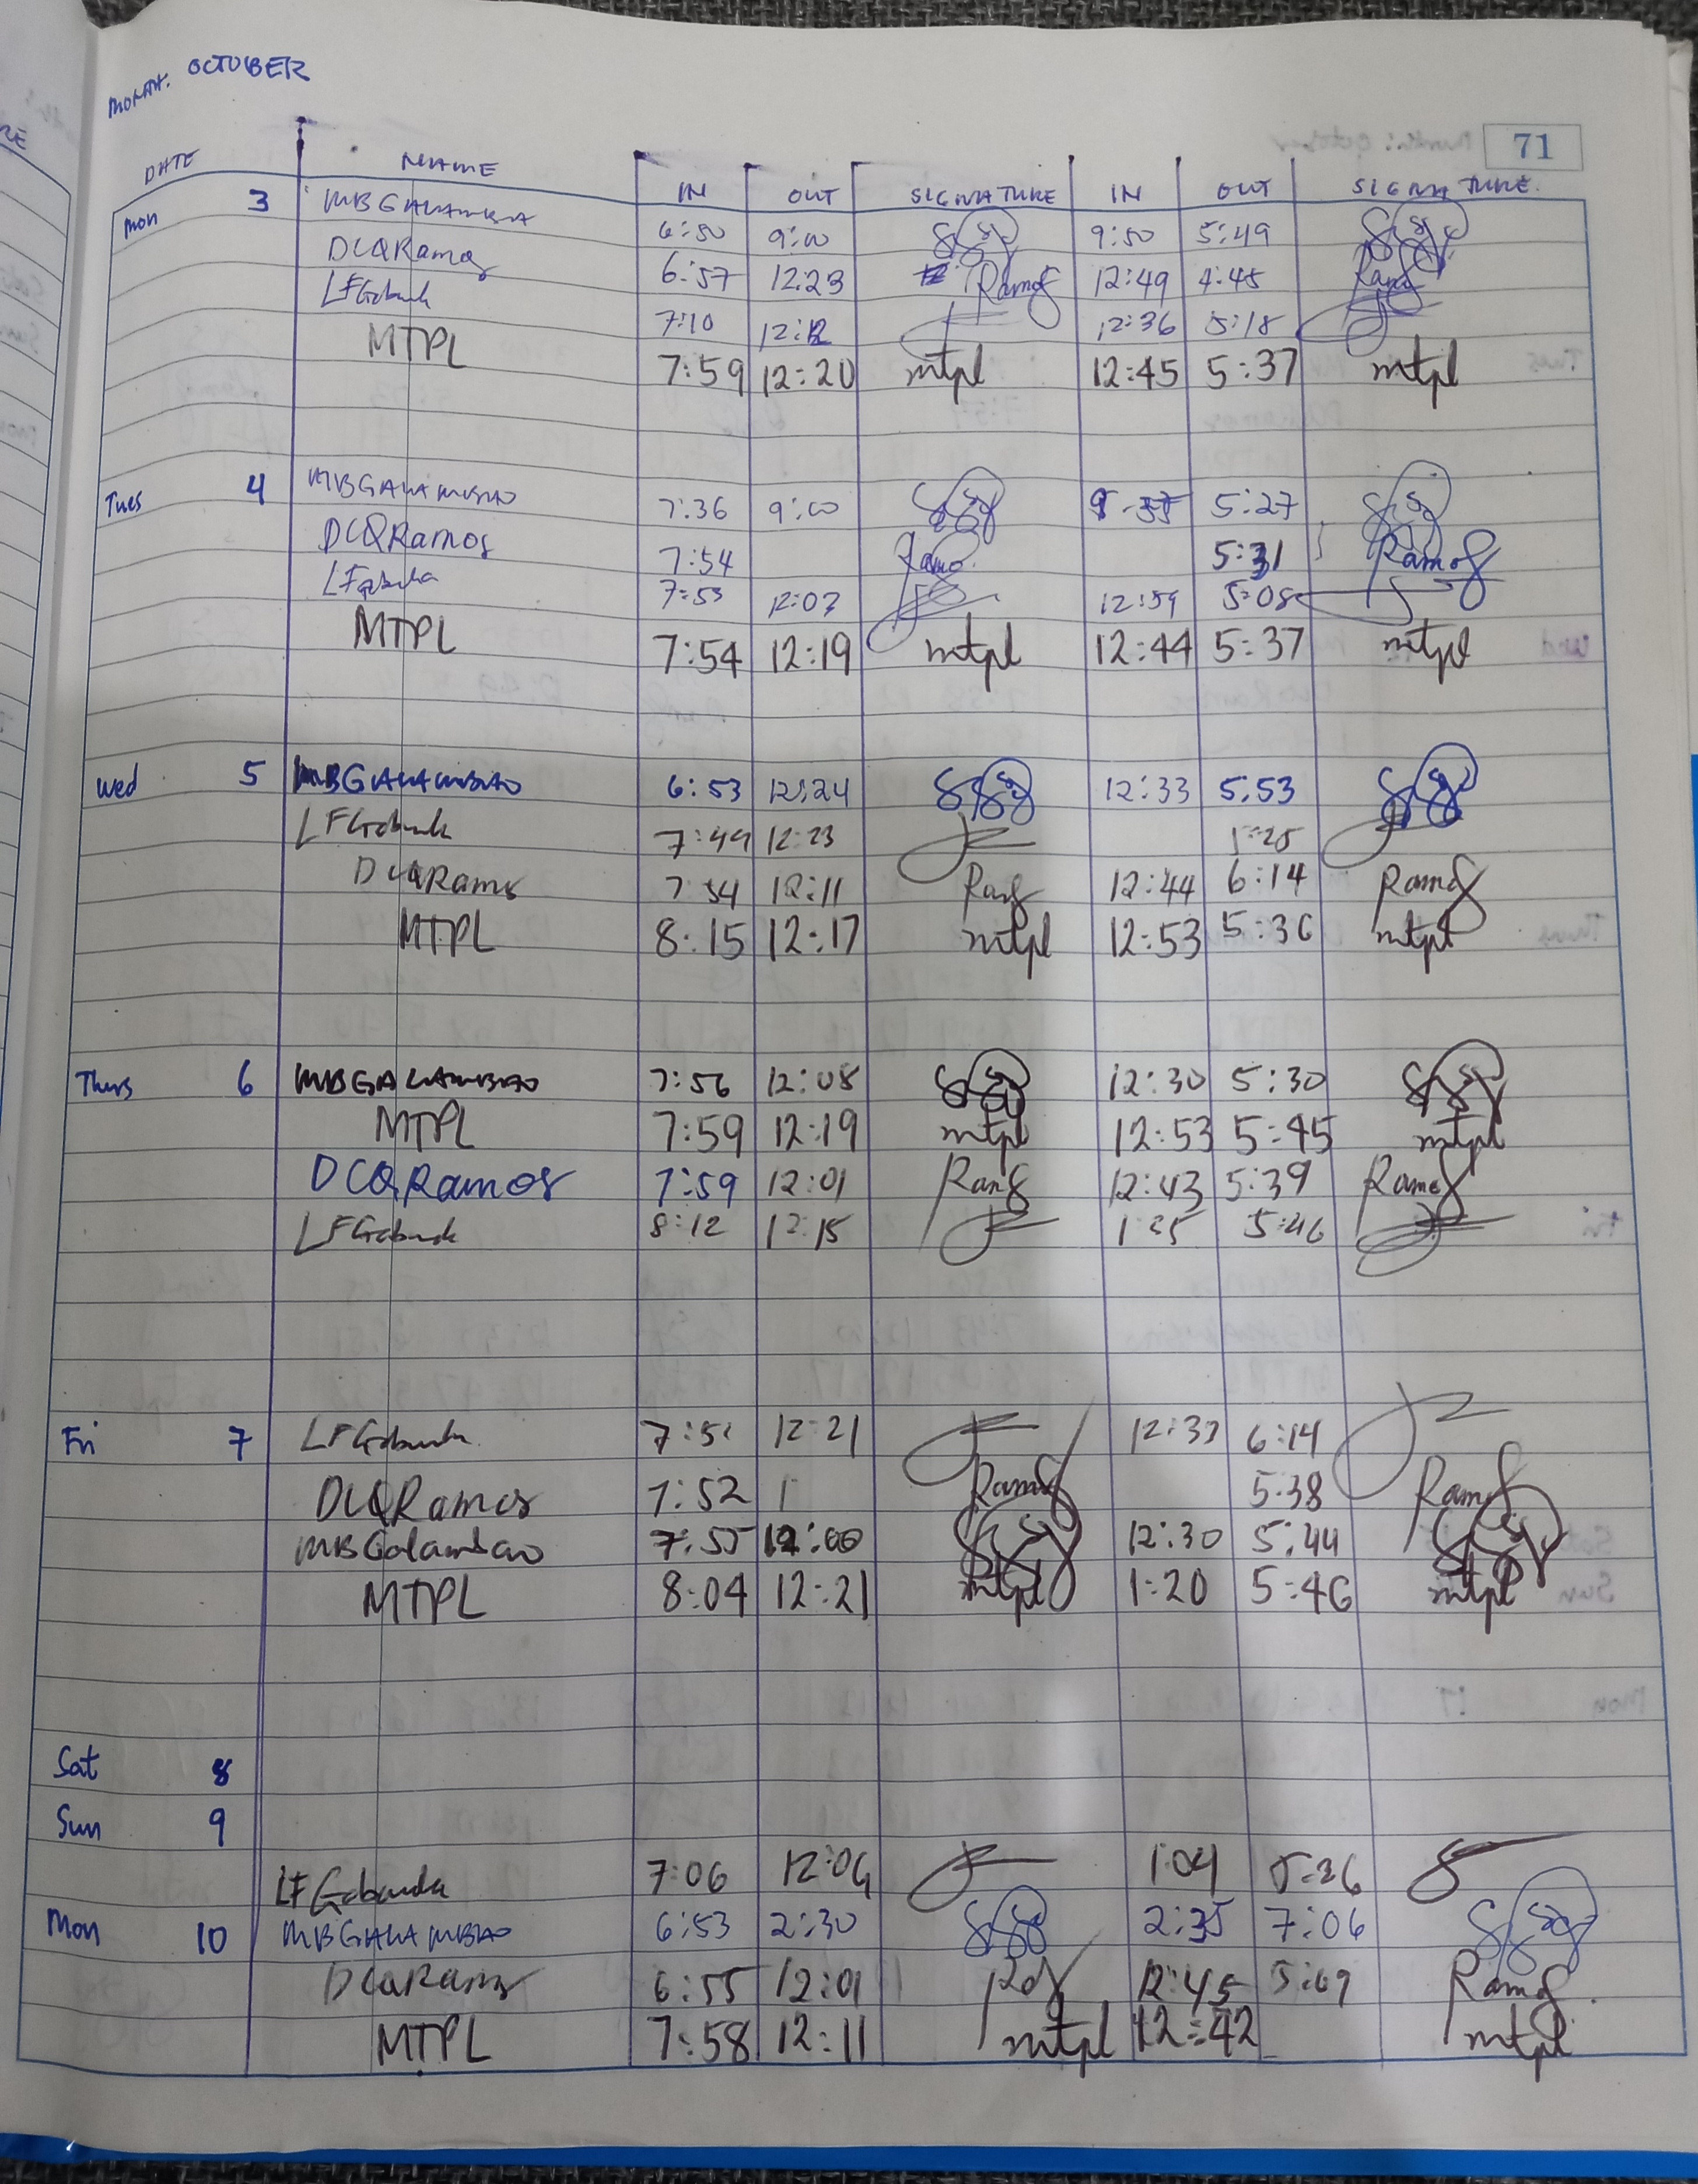 MONTH: OCTOBER
71
DATE NAME IN OUT SIGNATURE IN OUT SIGNATURE
Mon 3 MBGALAMBAO 6:50 9:00 9:50 5:49
DCQRamos 6:57 12:23 Ramos 12:49 4:45 Ramos
LFGabunda 7:10 12:12 12:36 5:18
MTPL 7:59 12:20 mtpl 12:45 5:37 mtpl
Tues 4 MBGALAMBAO 7:36 9:00 5:27
DCQRamos 7:54 Ramos 5:31 Ramos
LFGabunda 7:53 12:03 12:59 5:08
MTPL 7:54 12:19 mtpl 12:44 5:37 mtpl
Wed 5 MBGALAMBAO 6:53 12:24 12:33 5:53
LFGabunda 7:49 12:23 5:25
DCQRamos 7:54 12:11 Ramos 12:44 6:14 Ramos
MTPL 8:15 12:17 mtpl 12:53 5:36 mtpl
Thurs 6 MBGALAMBAO 7:56 12:08 12:30 5:30
MTPL 7:59 12:19 mtpl 12:53 5:45 mtpl
DCQRamos 7:59 12:01 Ramos 12:43 5:39 Ramos
LFGabunda 8:12 12:15 1:25 5:46
Fri 7 LFGabunda 12:21 12:37 6:14
DCQRamos 7:52 Ramos 5:38 Ramos
MBGalambao 7:55 12:00 12:30 5:44
MTPL 8:04 12:21 mtpl 1:20 5:46 mtpl
Sat 8
Sun 9
LFGabunda 7:06 12:04 1:04 5:36
Mon 10 MBGALAMBAO 6:53 2:30 2:35 7:06
DCQRamos 6:55 12:01 12:45 5:09 Ramos
MTPL 7:58 12:11 mtpl 12:42 mtpl